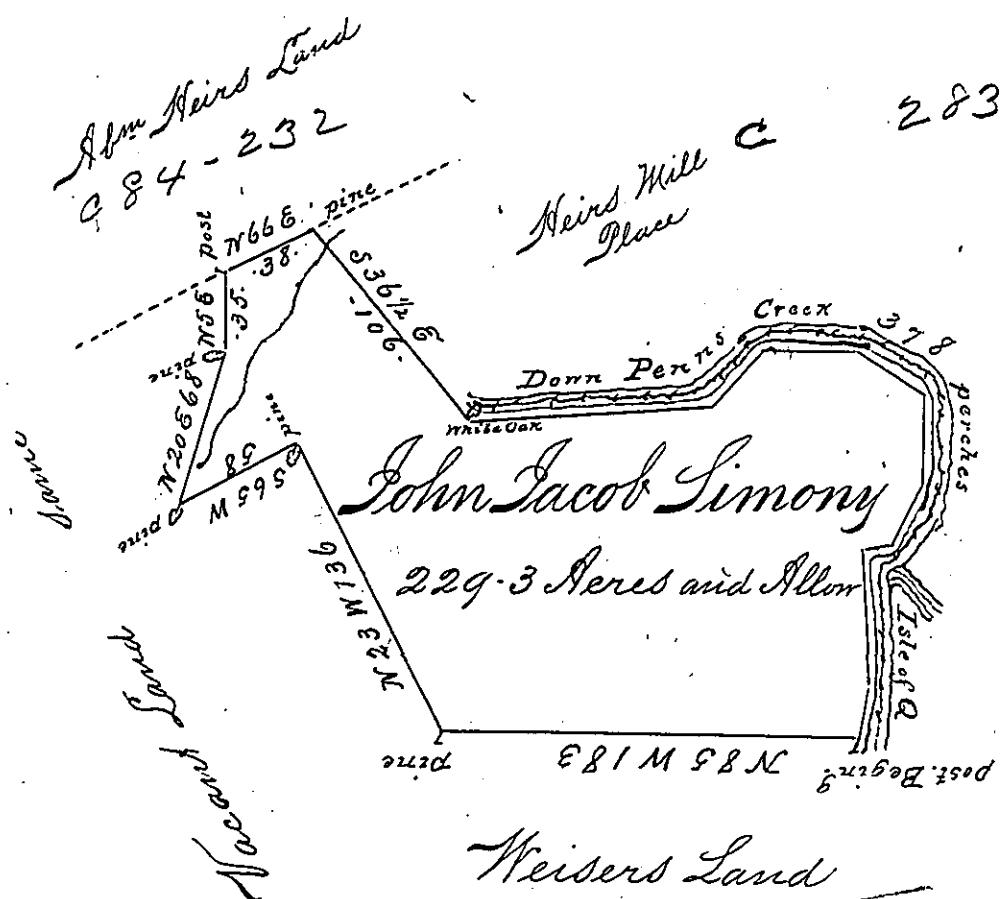 Abm Heirs Land
C 84-232
C 283
Heirs Mill
Place
post
N66E.
.38.
pine
N5E
.35.
pine
N20E68
pine
S65W
58
pine
S36½E
.106.
White Oak
Down Penns Creek 378 perches
Isle of Q
John Jacob Simony
229.3 Acres and Allow
N23W.136
pine
N85W183
post. Beging
Vacant Land
Weisers Land